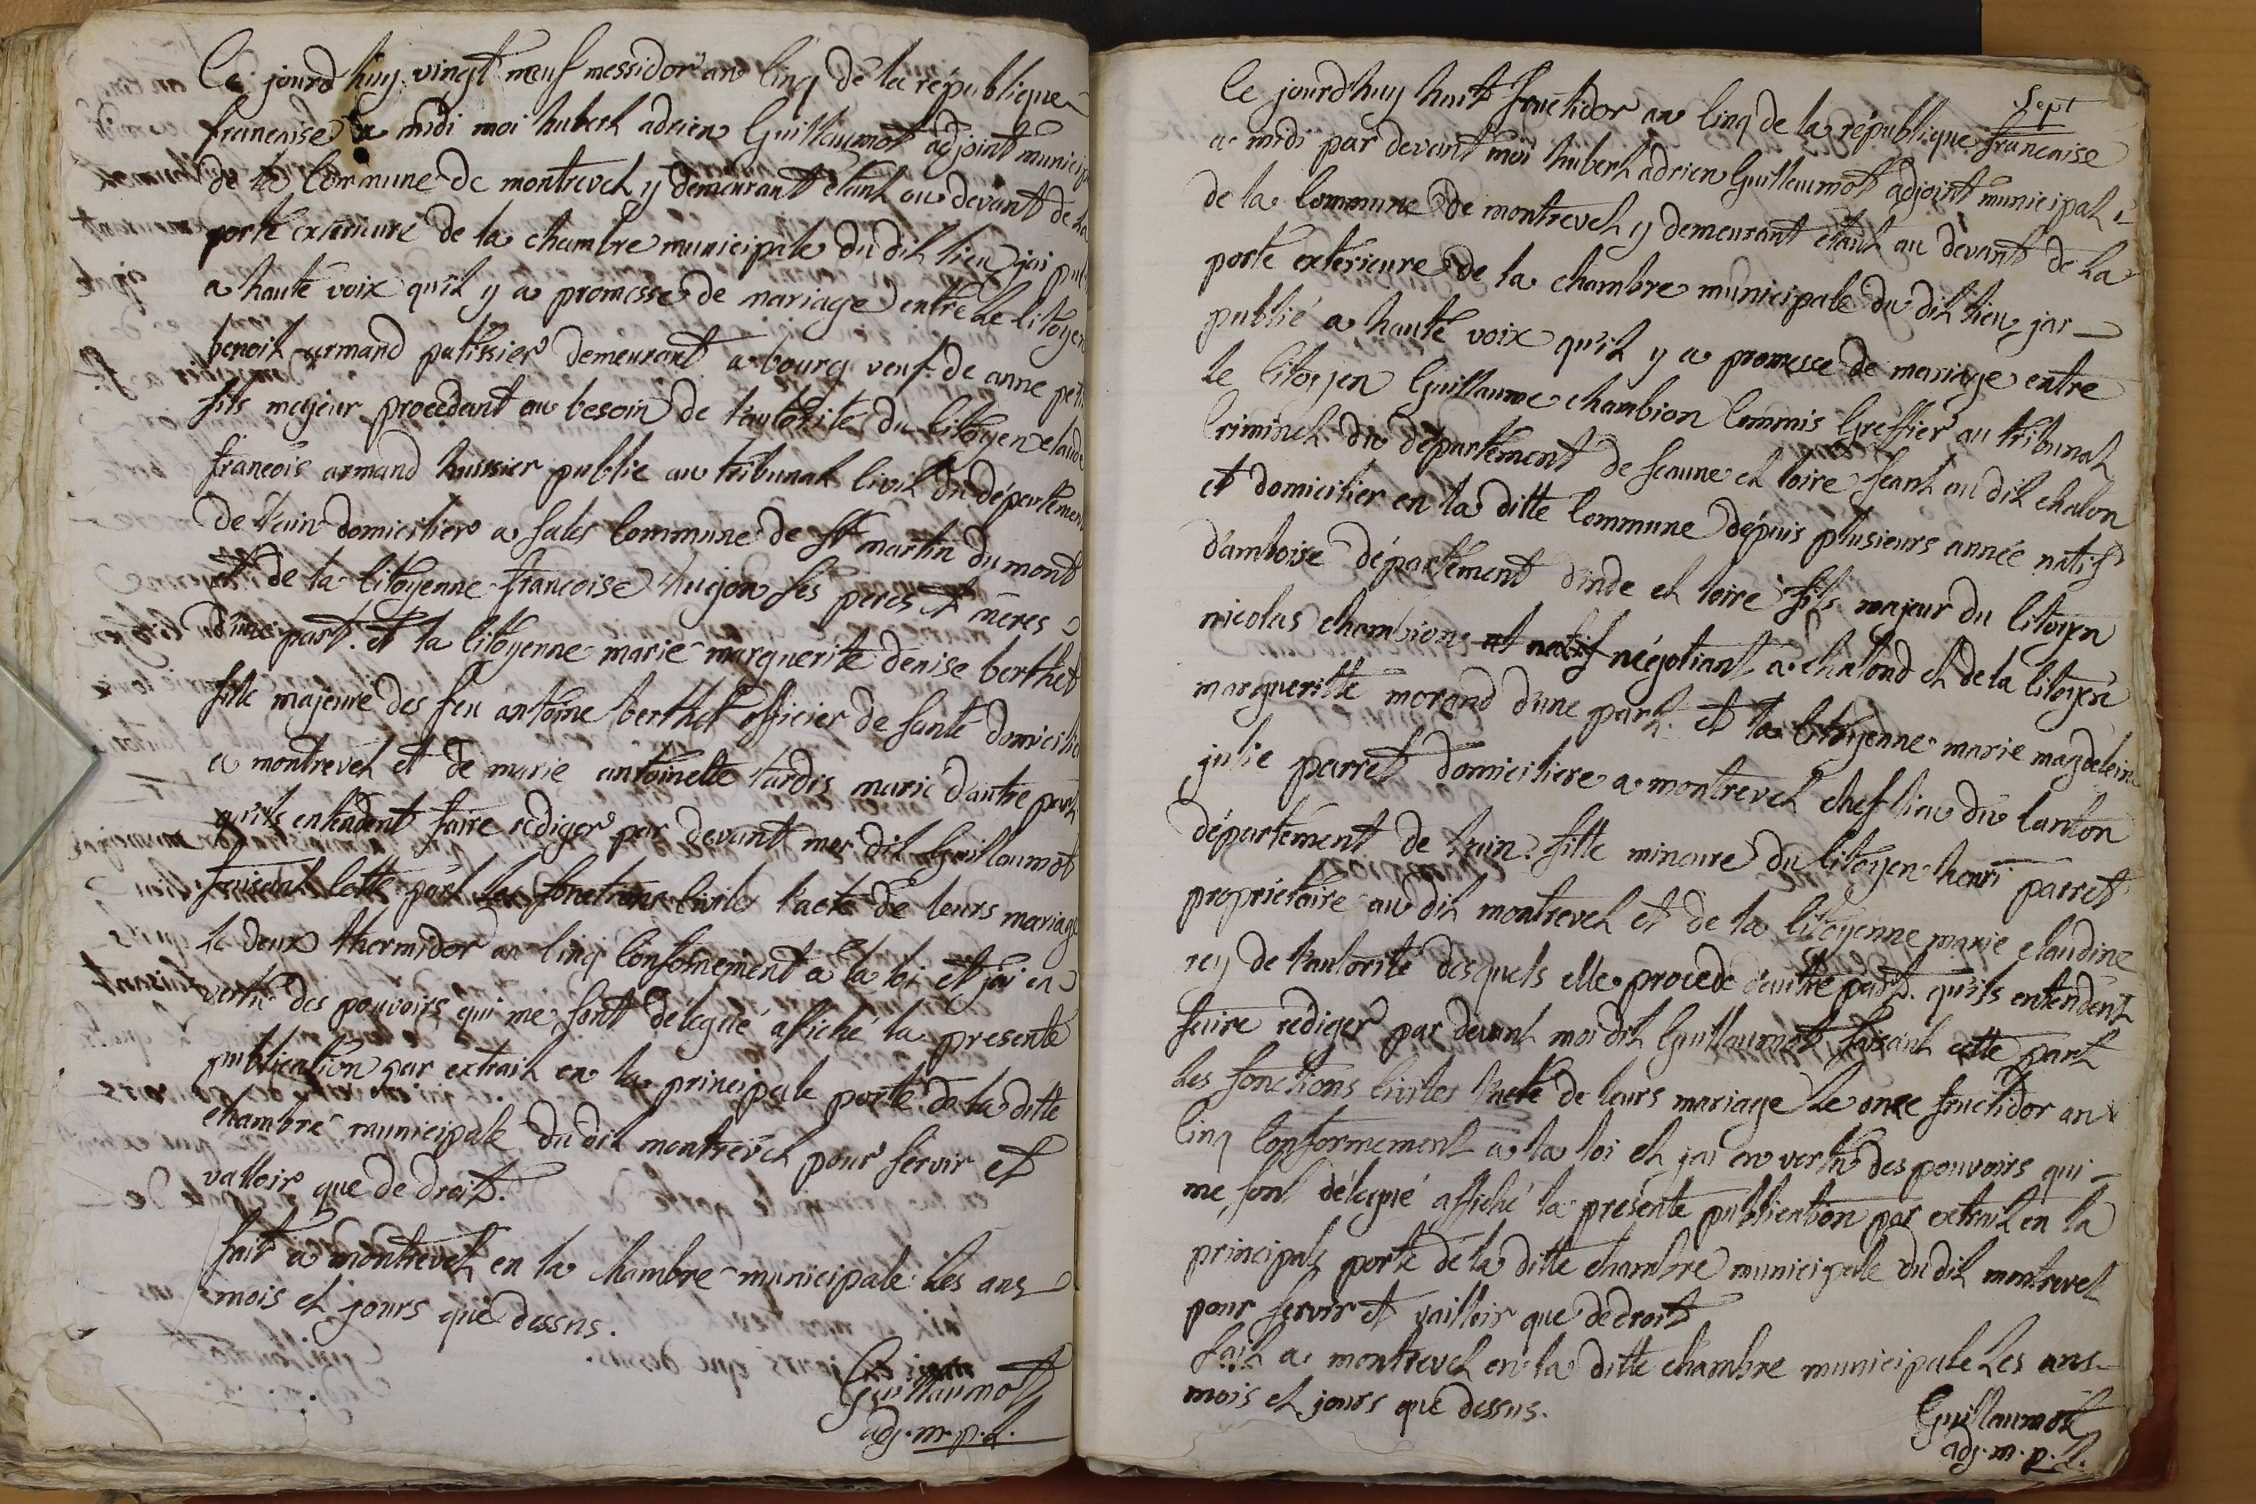 Ce jourd'huy vingt neuf messidor an Cinq de la république
francaise a midi moi hubert adrien Guillaumot adjoint municip
de la Commune de montrevel y demeurant étant au devant de la
porte exterieure de la chambre municipale du dit lieu jai pu
a haute voix qu'il y a promesse de mariage entre le Citoyen
benoit armand patissier demeurant a bourg veuf de anne pe
fils majeur procedant au besoin de l'autorité du Citoyen claude
francois armand huissier public au tribunal Civil du département
de l'ain domicilier a sales Commune de St martin du mont
et de la Citoyenne francoise hugon ses peres et meres
d'une part. et la Citoyenne marie marguerite denise berthet
fille majeure des feu antoine berthet officier de santé domicilié
a montrevel et de marie antoinette tardis marié d'autre part
qu'ils entendent faire rédiger par devant mes dit Guillaumot
faisant Cette part les fonctions Civiles l'acte de leurs mariage
le deux thermidor an Cinq Conformement a la loi et jai en
vertu des pouvoirs qui me sont délégué affiché la presente
publication par extrait en la principale porte de la ditte
chambre municipale du dit montrevel pour servir et
valloir que de droit.
fait a montrevel en la chambre municipale les ans
mois et jours que dessus.
Guillaumot
adj. m. p. l.
Sept
Ce jourd'huy huit fructidor an Cinq de la république francaise
a midi par devant moi hubert adrien Guillaumot adjoint municipal
de la Commune de montrevel y demeurant étant au devant de la
porte exterieure de la chambre municipale du dit lieu jai
publié a haute voix qu'il y a promesse de mariage entre
le Citoyen Guillaume chambion Commis Greffier au tribunal
Criminel du département de Seaune et loire séant au dit chalon
et domicilier en la ditte Commune depuis plusieurs année natif
d'amboise département d'inde et loire fils majeur du Citoyen
nicolas chambion et natif négotiant a chalond et de la Citoyene
margueritte morand d'une part. et la Citoyenne marie magdeleine
julie parret domiciliere a montrevel chef lieu du Canton
département de l'ain. fille mineure du Citoyen henri parret
propriétaire au dit montrevel et de la Citoyenne marie claudine
rey de l'autorité desquels elle procede d'autre part. qu'ils entendent
faire rediger par devant moi dit Guillaumot faisant cette part
les fonctions Civiles l'acte de leurs mariage le onze fructidor an
Cinq Conformement a la loi et jai en vertu des pouvoirs qui
me sont délegué affiché la presente publication par extrait en la
principale porte de la ditte chambre municipale du dit montrevel
pour servir et vailloir que de droit
fait a montrevel en la ditte chambre municipale les ans
mois et jours que dessus.
Guillaumot
adj. m. p. l.